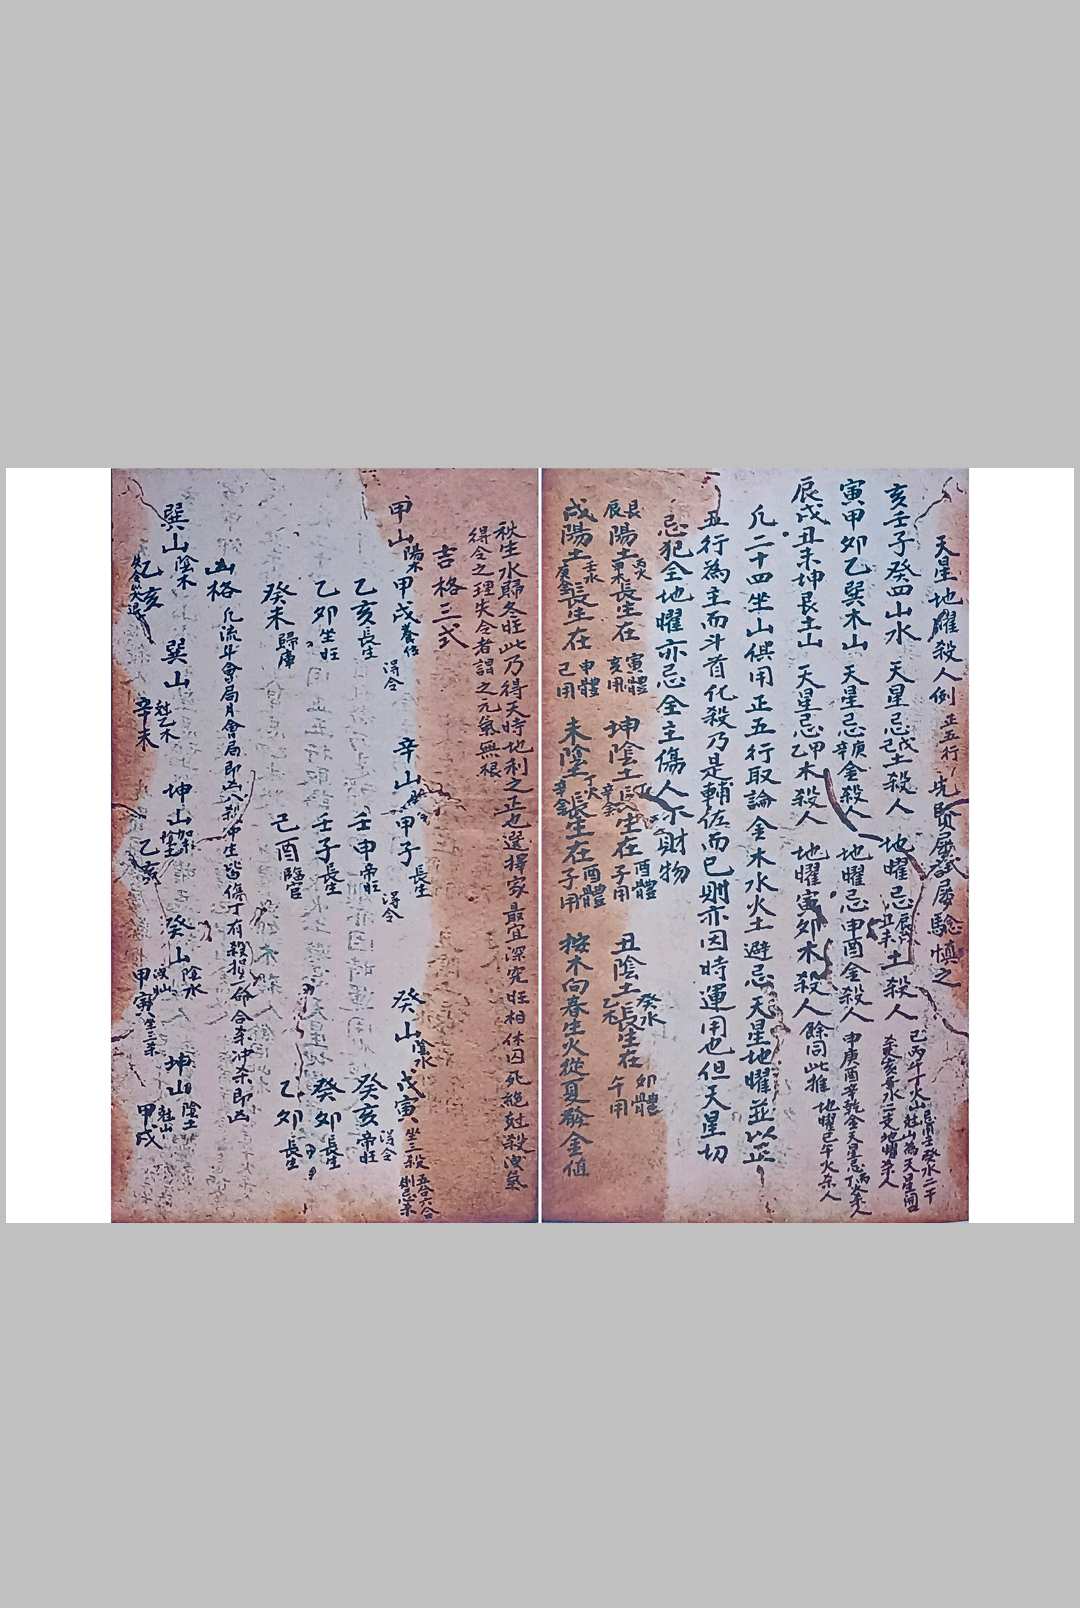 天星地曜殺人例 正五行 先賢屢試屢驗慎之
亥壬子癸四山水 天星忌戊己土殺人 地曜忌辰戌丑未土殺人 巳丙午火山 壬癸水二干 為天星 亥子水二支地曜杀人
寅甲卯乙巽木山 天星忌庚辛金殺人 地曜忌申酉金殺人 申庚酉辛乾金天星忌丙丁火杀人
辰戌丑未坤艮土山 天星忌甲乙木殺人 地曜寅卯木殺人 餘同此推 地曜巳午火杀人
凡二十四坐山俱用正五行取論金木水火土避忌天星地曜並以正
五行為主而斗首化殺乃是輔佐而已則亦因時運用也但天星切
忌犯全地曜亦忌全主傷人不財物
艮辰陽土丙火甲木長生在寅體亥用 坤陰土丁火辛金長生在酉體子用 丑陰土癸水乙木長生在卯體午用
戌陽土壬水庚金長生在申體巳用 未陰土丁火辛金長生在酉體子用 按木向春生火從夏發金值
秋生水歸冬旺此乃得天時地利之正也選擇家最宜深究旺相休囚死絕尅殺洩氣
得令之理失令者謂之元氣無根
吉格三式
甲山陽木 甲戌養位 得令 辛山陰金 甲子長生 得令 癸山陰水 戊寅坐三殺 五合六合則忌杀
乙亥長生 壬申帝旺 癸亥帝旺 得令
乙卯坐旺 壬子長生 癸卯長生
癸未歸庫 己酉臨官 乙卯長生
凶格 凡流斗會局月會局即凶 刹冲生皆傷丁有殺損命合杀冲杀即凶
巽山陰木 巽山 坤山 癸山陰水 坤山陰土
乙亥 辛未 尅乙木 乙亥 甲寅坐三杀 甲戌